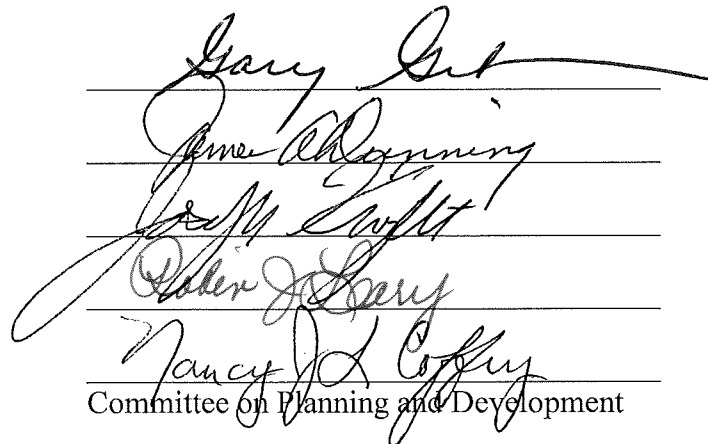 Gary
James A Dunning
Joseph
Robin J Leary
Nancy J L Coffey
Committee on Planning and Development